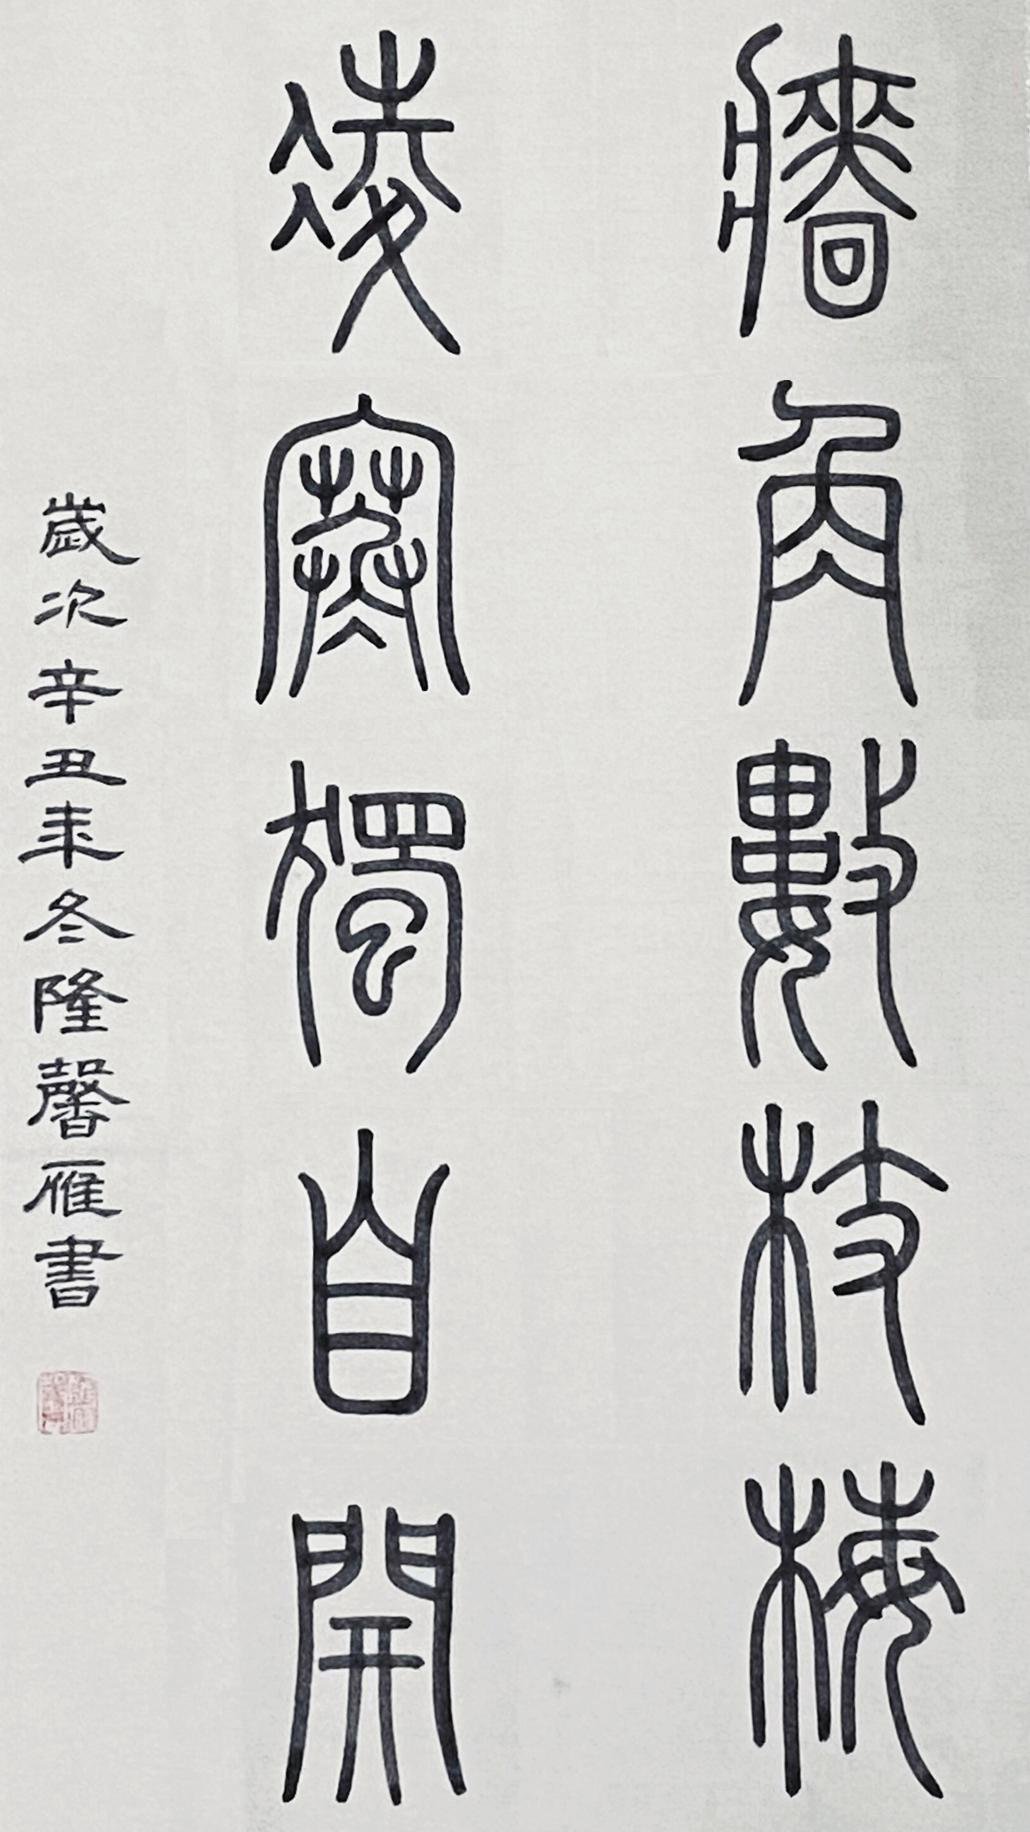 牆角數枝梅
凌寒獨自開
歲次辛丑年冬隆馨雁書